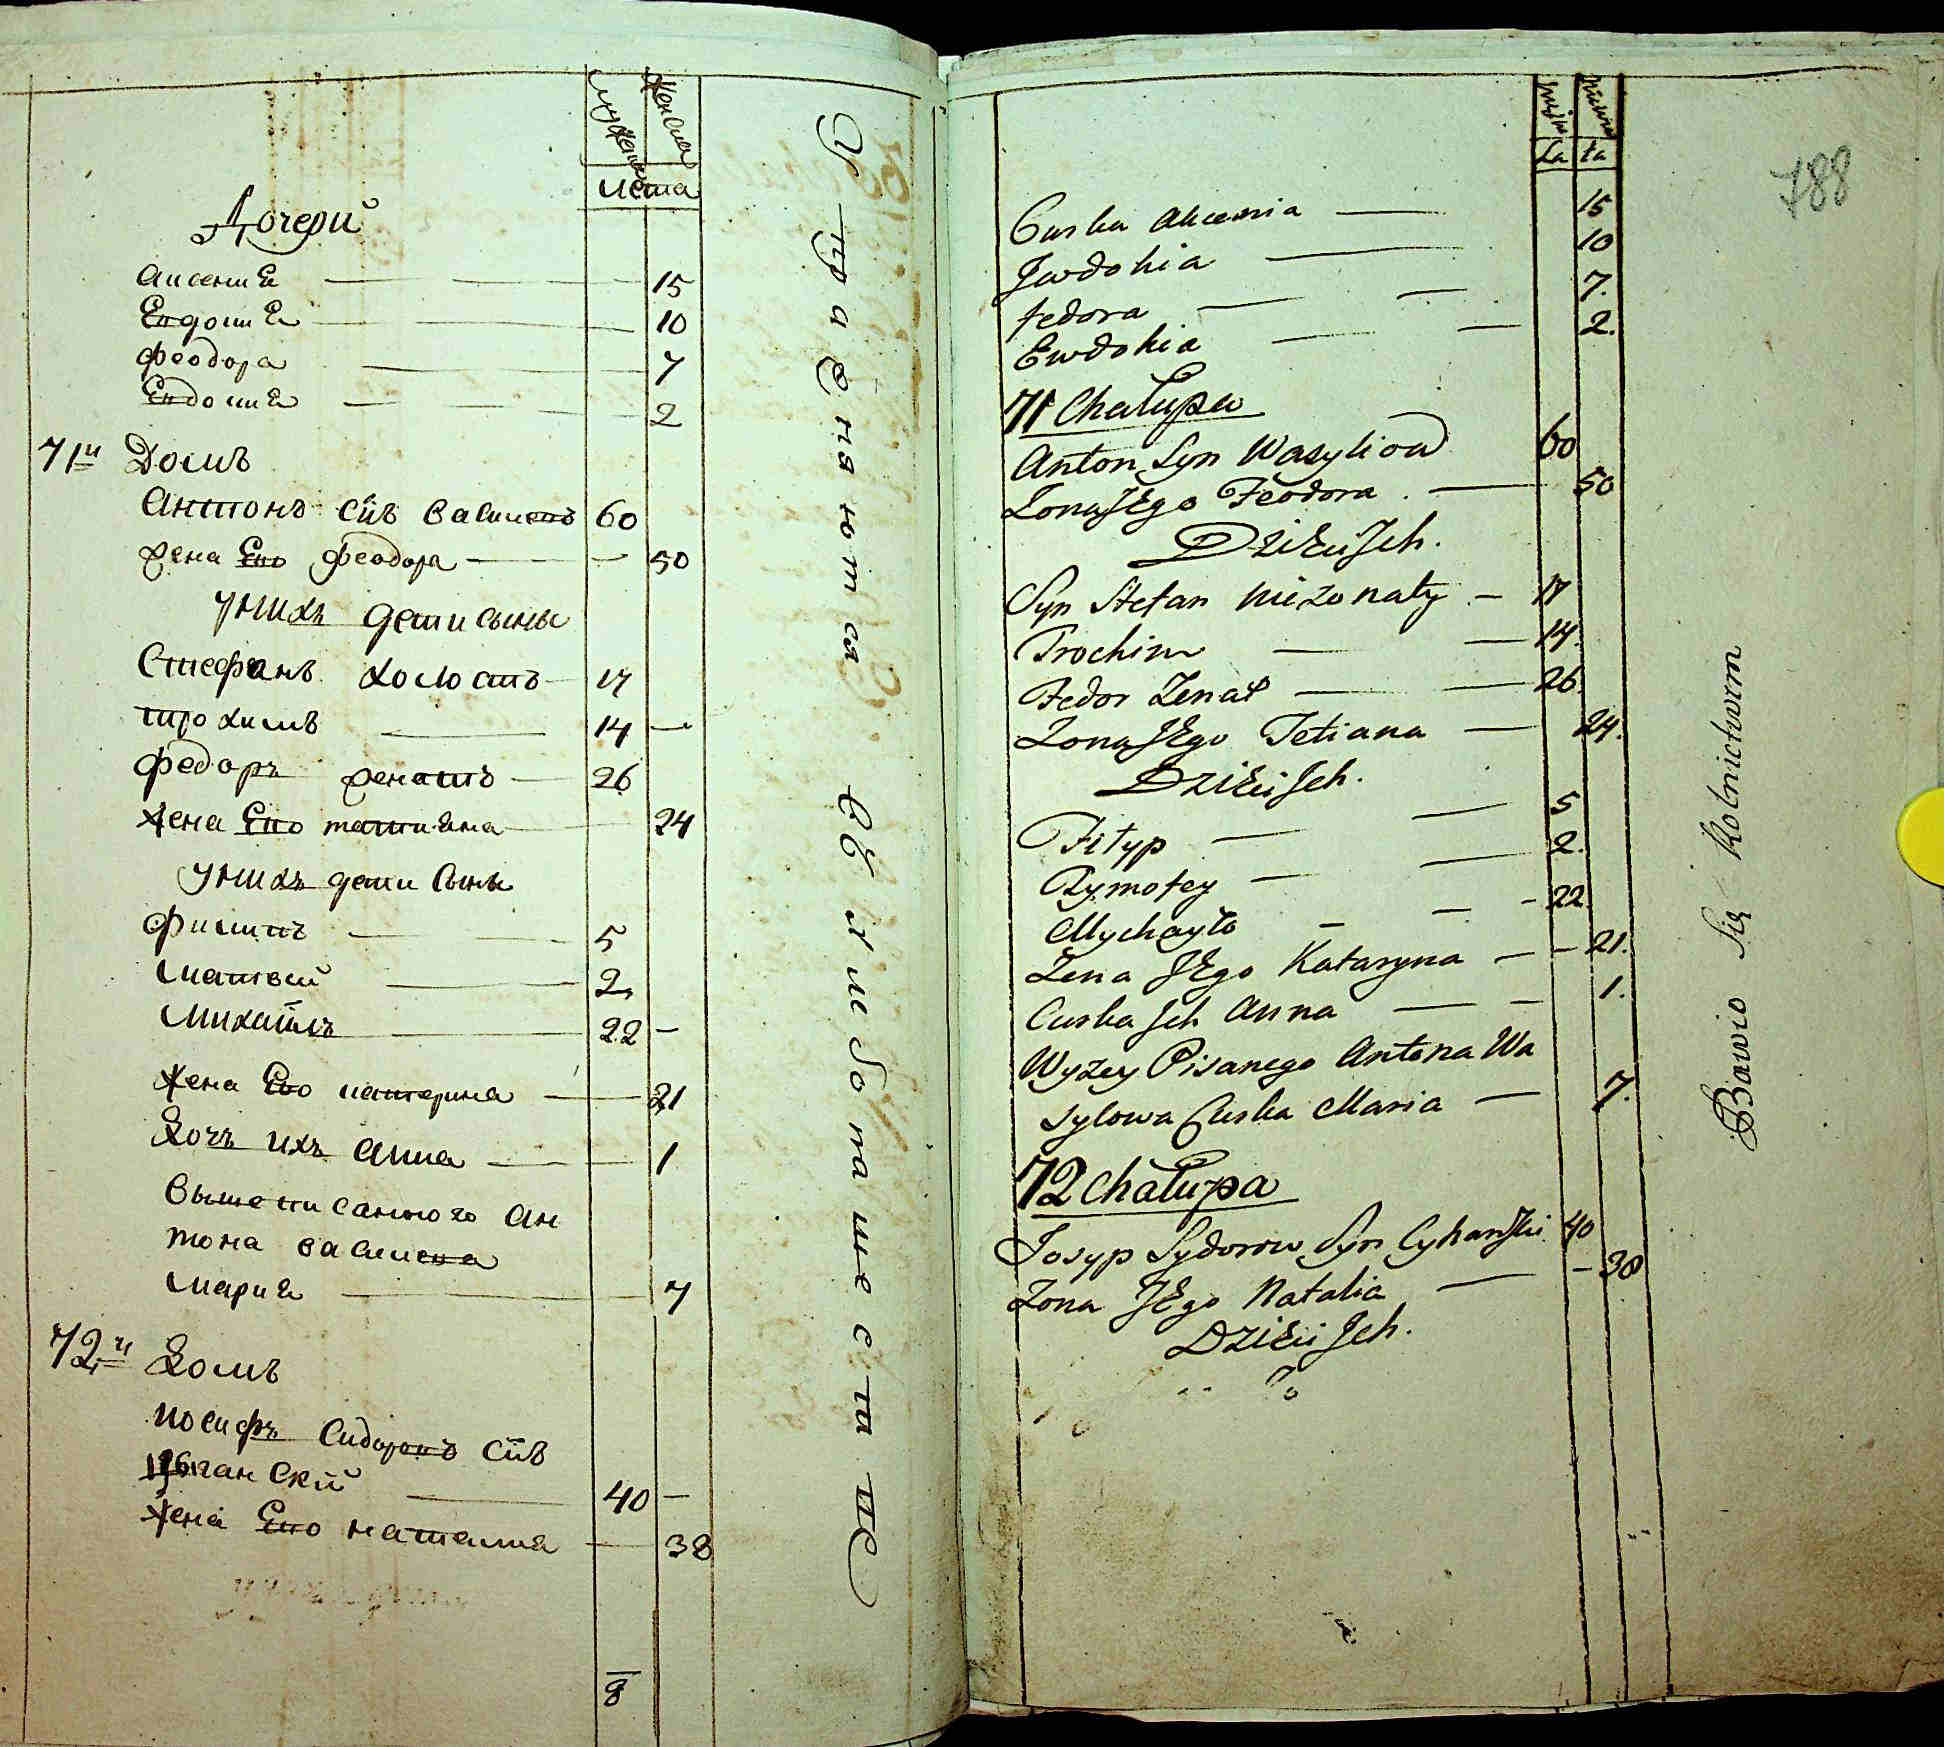 мужеска
женска
лета
Дочери
Аксения 15
Евдокия 10
Феодора 7
Евдокия 2
71й Домъ
Антонъ Сн҃ъ Василевъ 60
Жена Его Феодора 50
У нихъ дети сыны
Стефанъ холостъ 17
Трохимъ 14
Федоръ женатъ 26
Жена Его татияна 24
У нихъ дети Сыны
Филипъ 5
Матвей 2
Михайлъ 22
Жена Его катерина 21
Дочь ихъ Анна 1
Вышеписанного Ан
тона Василева
Мария 7
72й Домъ
Иосифъ Сидоровъ Сн҃ъ
Цыганский 40
Жена Его наталия 38
18
Упражняются въ хлебопашестве
męzka
żenska
La ta
788
Curka Akcenia 15
Jwdokia 10
Fedora 7.
Ewdokia 2.
71 Chałupa
Anton Syn Wasyliow 60
Zona JEgo Feodora 50
Dzieci Jch.
Syn Stefan nieżonaty 17
Trochim 14.
Fedor Zenat 26.
Zona JEgo Tetiana 24.
Dzieci Jch.
Filyp 5
Tymofey 2.
Mychayło 22
Zena JEgo Kataryna 21.
Curka Jch Anna 1.
Wyzey Pisanego Antona Wa
sylowa Curka Maria 7.
72 Chałupa
Josyp Sydorow Syn Cyhanski 40
Zona JEgo Natalia 38
Dzieci Jch.
Bawio Się Rolnictwem